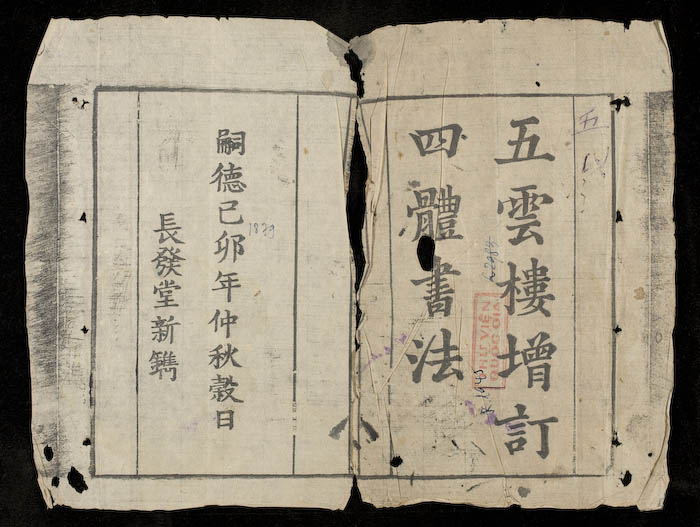 五雲樓增訂
四體書法
嗣德己卯年仲秋穀日
長發堂新鐫
THƯ VIỆN
QUỐC GIA
1879